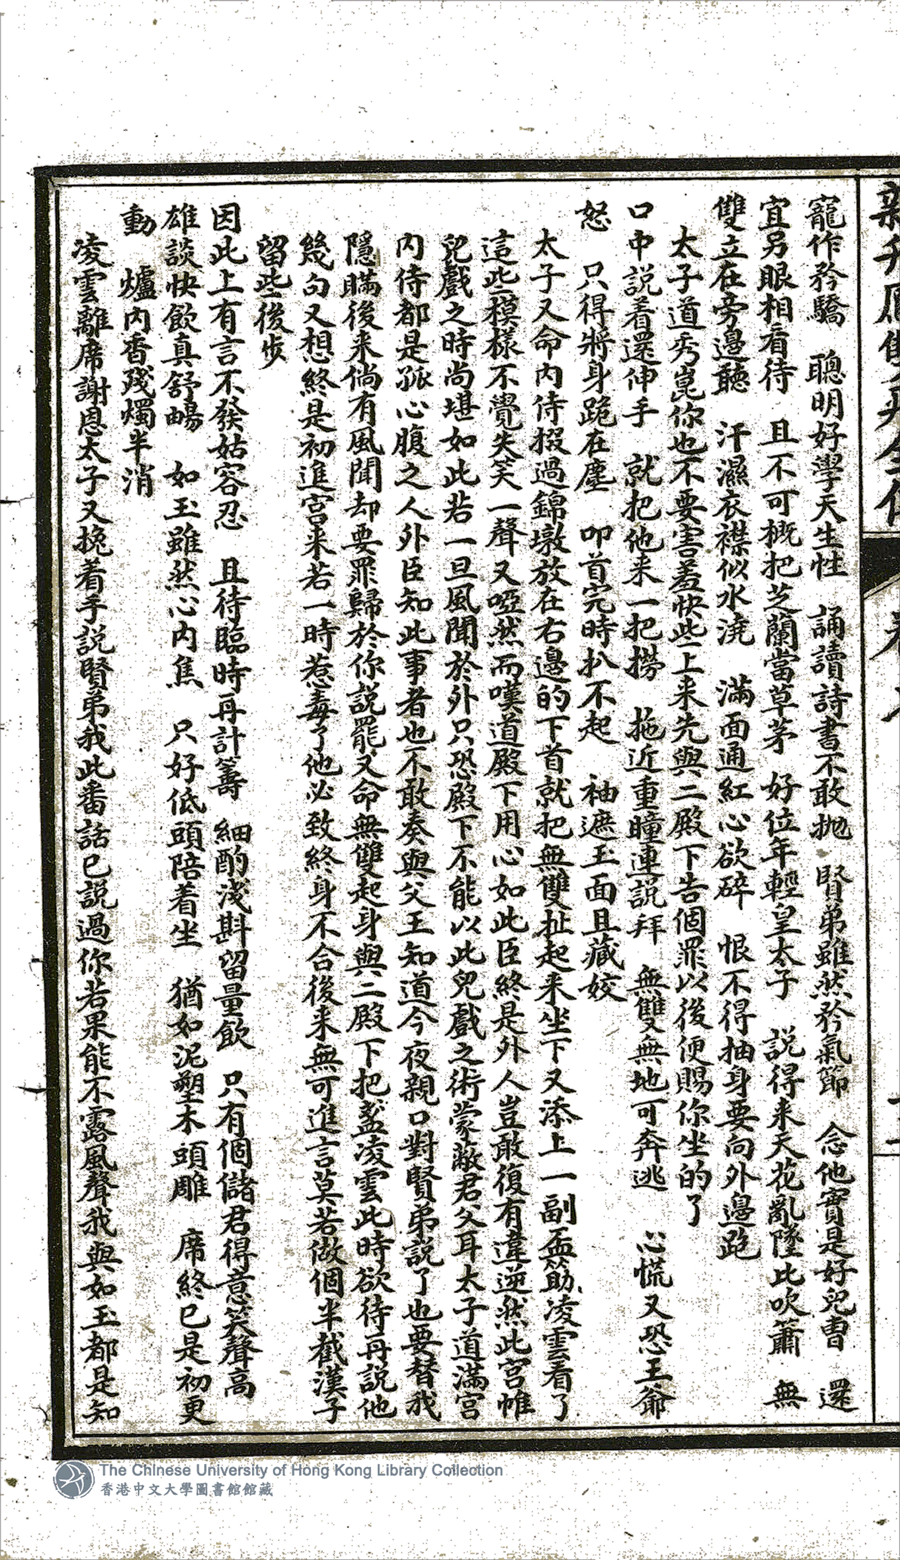 寵作矜驕 聰明好學天生性 誦讀詩書不敢拋 賢弟雖然矜氣節 念他實是好兒曹 還
宜另眼相看待 且不可概把芝蘭當草茅 好位年輕皇太子 說得來天花亂墜比吹簫 無
雙立在旁邊聽 汗濕衣襟似水澆 滿面通紅心欲碎 恨不得抽身要向外邊跑
太子道秀崑你也不要害羞快些上來先與二殿下告個罪以後便賜你坐的了
口中説着還伸手 就把他來一把撈 拖近重瞳連説拜 無雙無地可奔逃 心慌又恐王爺
怒 只得將身跪在塵 叩首完時扒不起 袖遮玉面且藏姣
太子又命內侍掇過錦墩放在右邊的下首就把無雙扯起來坐下又添上一副盃筯凌雲看了
這些模樣不覺失笑一聲又啞然而嘆道殿下用心如此臣終是外人豈敢復有違逆然此宮帷
兒戲之時尚堪如此若一旦風聞於外只恐殿下不能以此兒戲之術蒙敝君父耳太子道滿宮
內侍都是孤心腹之人外臣知此事者也不敢奏與父王知道今夜親口對賢弟説了也要替我
隱瞞後來倘有風聞却要罪歸於你説罷又命無雙起身與二殿下把盞凌雲此時欲待再說他
幾句又想終是初進宮來若一時惹毒了他必致終身不合後來無可進言莫若做個半截漢子
留些後步
因此上有言不發姑容忍 且待臨時再計籌 細酌淺斟留量飲 只有個儲君得意笑聲高
雄談快飲真舒暢 如玉雖然心內焦 只好低頭陪着坐 猶如泥塑木頭雕 席終已是初更
動 爐內香殘燭半消
凌雲離席謝恩太子又挽着手說賢弟我此番話已說過你若果能不露風聲我與如玉都是知
The Chinese University of Hong Kong Library Collection
香港中文大學圖書館館藏